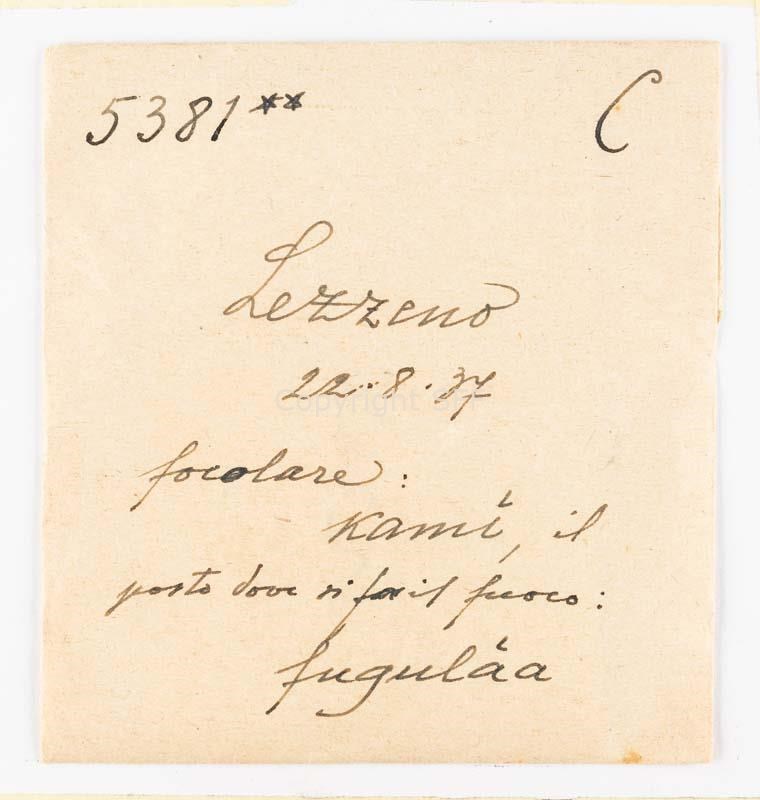 5381** C
Lezzeno
22.8.37
focolare:
kamí, il
posto dove si fa il fuoco:
fuguláa